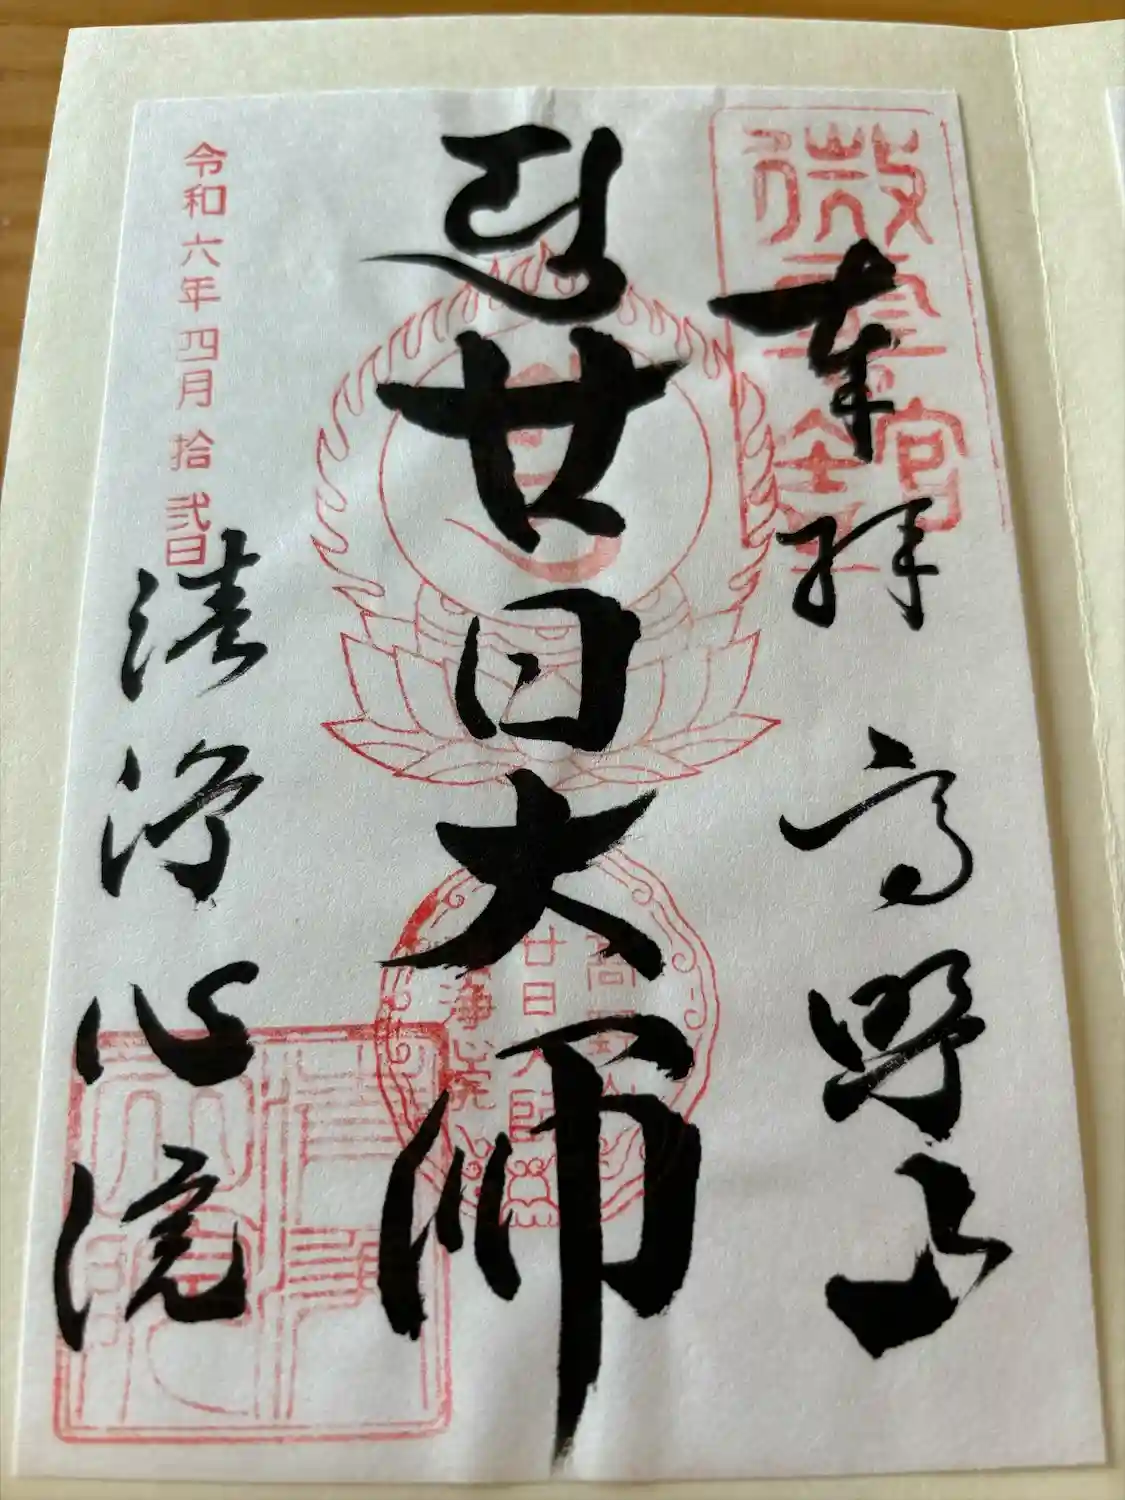 奉拝 高野山
廿日大師
清浄心院
令和六年四月拾弐日
高野山
廿日大師
清浄心院